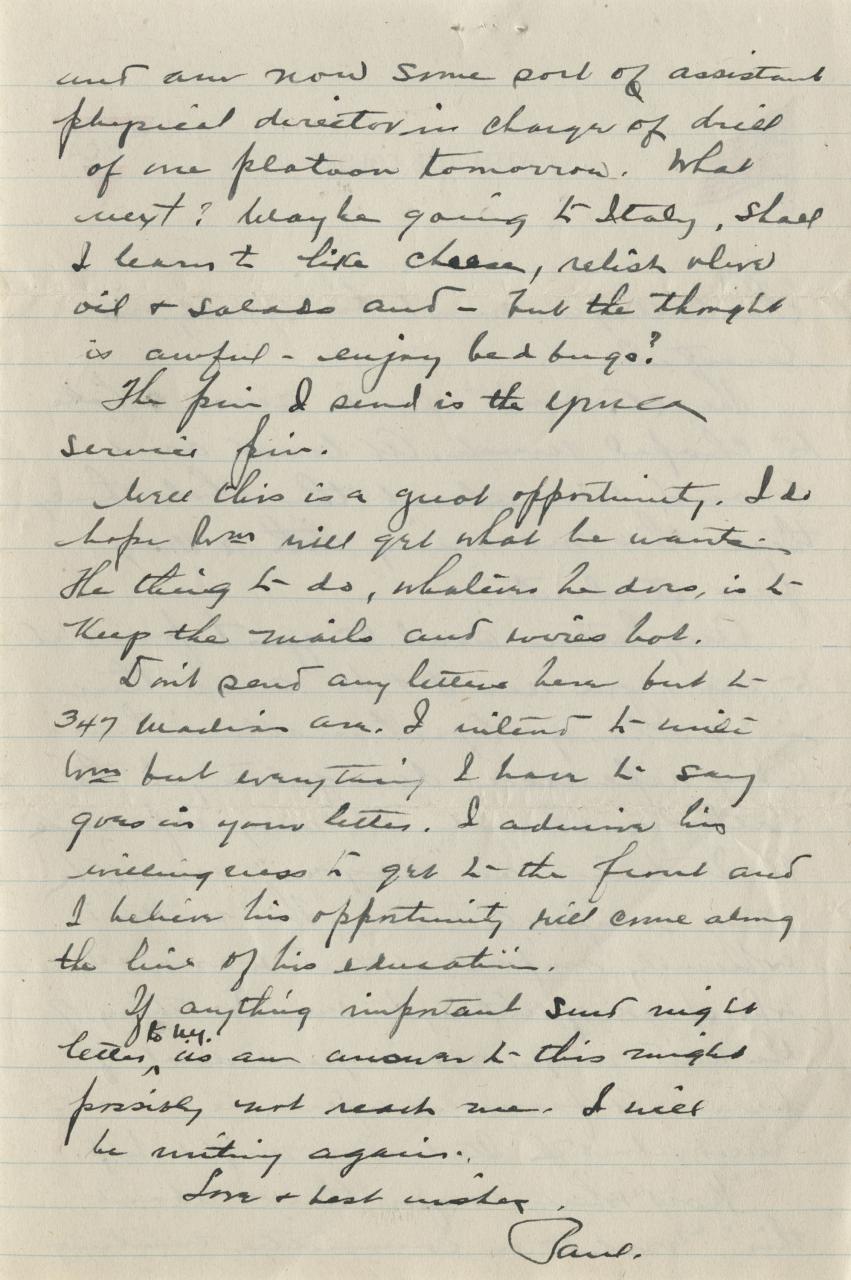 and am now some sort of assistant
physical director in charge of drill
of one platoon tomorrow. What
next? Maybe going to Italy, shall
I learn to like cheese, relish olive
oil + salads and - but the thought
is awful - enjoy bed bugs?
The pin I send is the YMCA
service pin.
Well this is a great opportunity. I do
hope Wm will get what he wants.
The thing to do, whatever he does, is to
keep the mails and wires hot.
Don't send any letters here but to
347 Madison ave. I intend to write
Wm but everything I have to say
goes in your letter. I admire his
willingness to get to the front and
I believe his opportunity will come along
the line of his education.
If anything important send night
letter to N.Y. as an answer to this might
possibly not reach me. I will
be writing again.
Love + best wishes.
Paul.